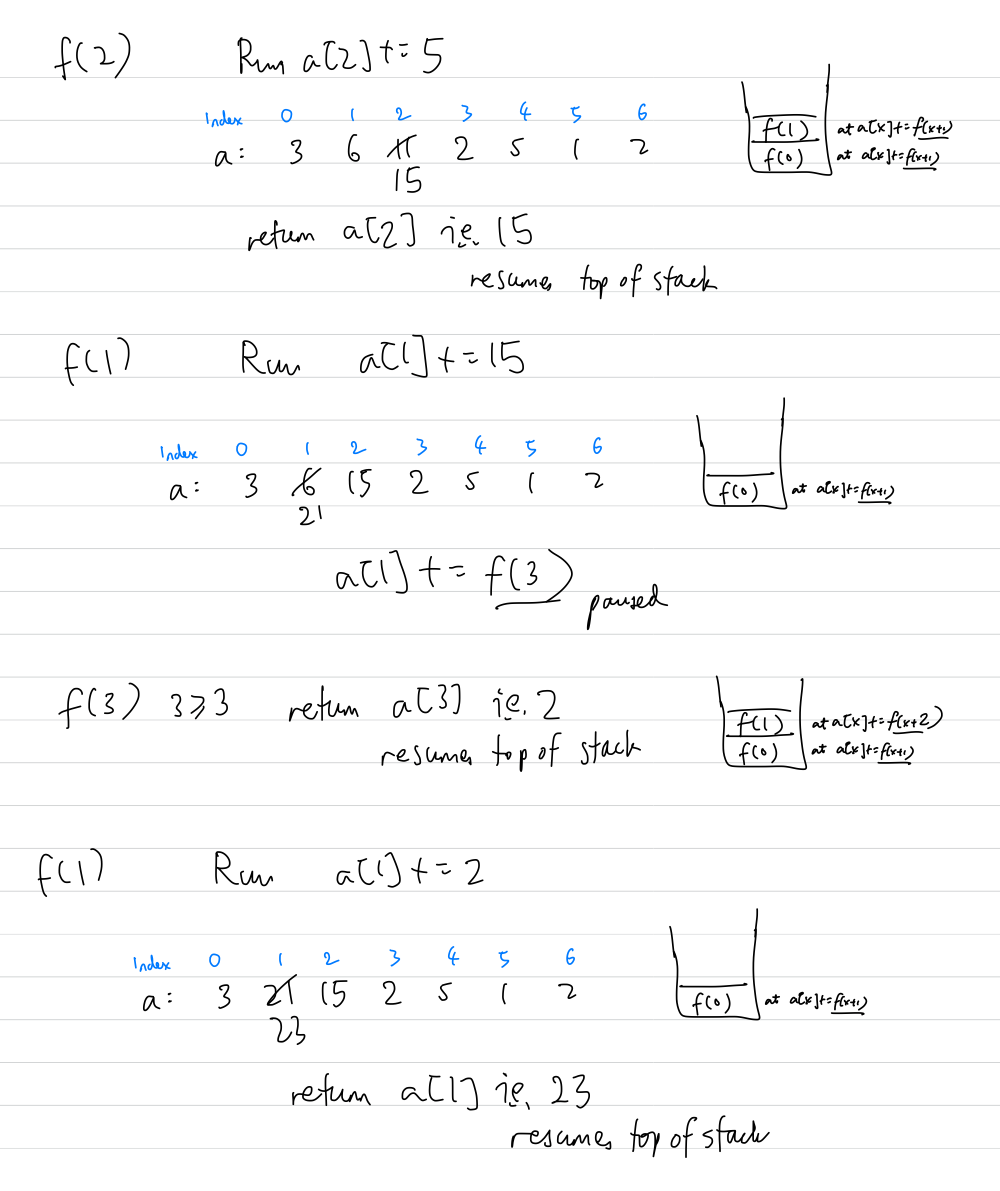 f(2) Run a[2] += 5
Index 0 1 2 3 4 5 6
a: 3 6 2 5 1 2
15
f(1) at a[x]+=f(x+1)
f(0) at a[x]+=f(x+1)
return a[2] i.e. 15
resumes top of stack
f(1) Run a[1] += 15
Index 0 1 2 3 4 5 6
a: 3 6 15 2 5 1 2
21
f(0) at a[x]+=f(x+1)
a[1] += f(3)
paused
f(3) 3⩾3 return a[3] i.e. 2
resumes top of stack
f(1) at a[x]+=f(x+2)
f(0) at a[x]+=f(x+1)
f(1) Run a[1] += 2
Index 0 1 2 3 4 5 6
a: 3 21 15 2 5 1 2
23
f(0) at a[x]+=f(x+1)
return a[1] i.e. 23
resumes top of stack